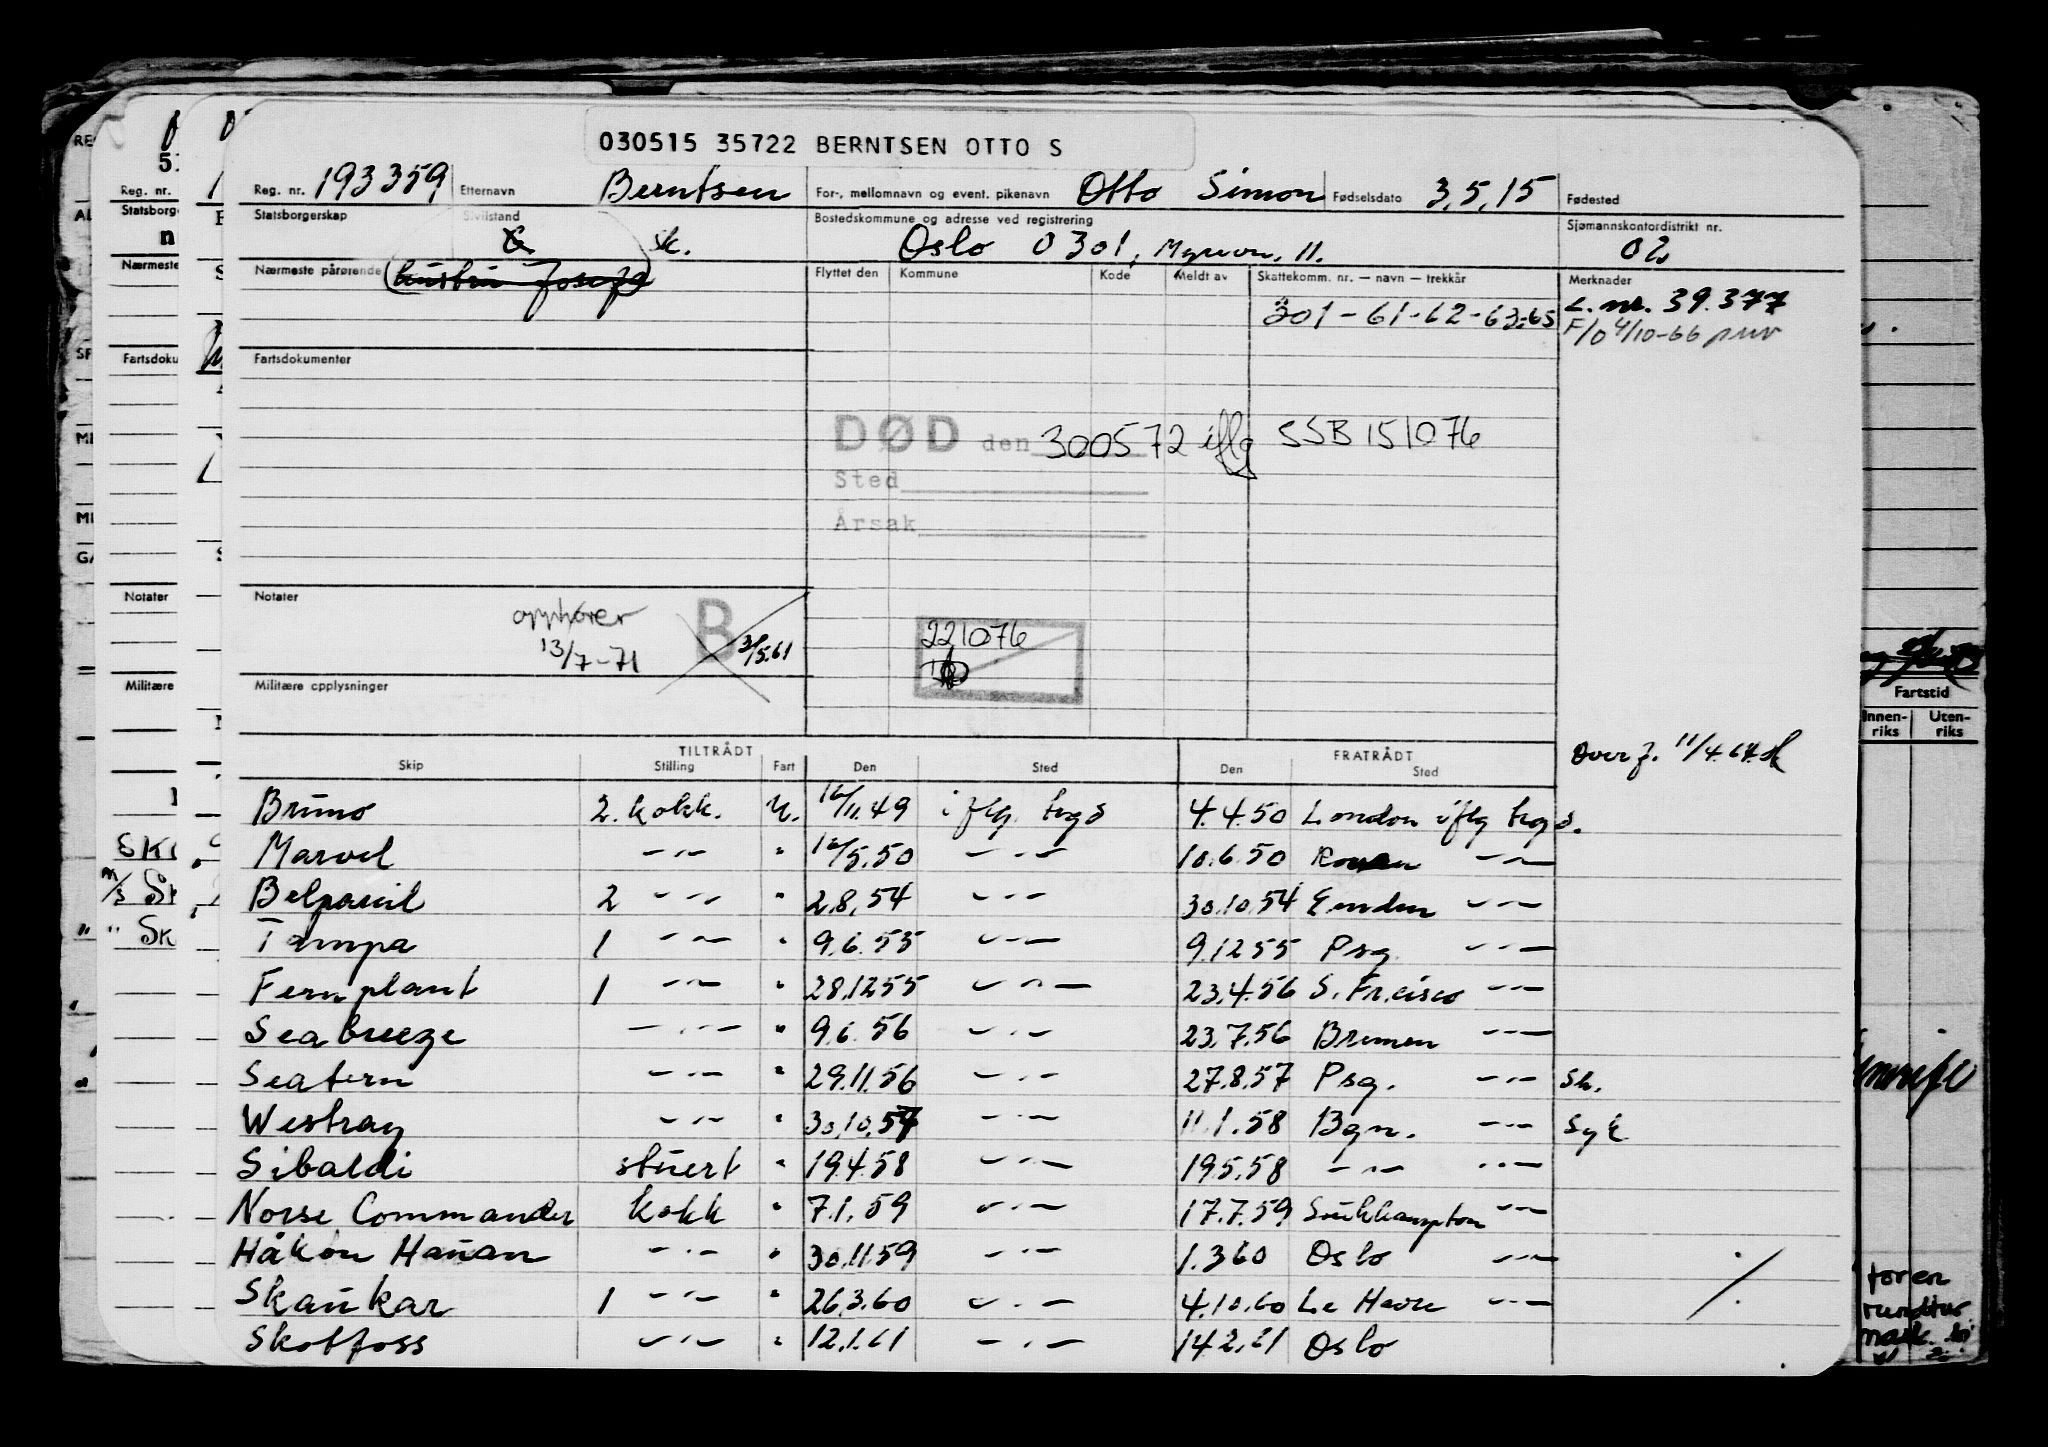 030515 35722 BERNTSEN OTTO S
Reg. nr. 193359 Etternavn Berntsen For-, mellomnavn og event. pikenavn Otto Simon Fødselsdato 3.5.15 Fødested
Statsborgerskap Sivilstand G sk. Bostedskommune og adresse ved registrering Oslo 0301, Myrvn. 11. Sjømannskontordistrikt nr. 02
Nærmeste pårørende hustru Josefa Flyttet den Kommune Kode Meldt av Skattekomm. nr. — navn — trekkår Merknader
301-61-62-63-65 L. nr. 39.377
F/O 4/10-66
Fartsdokumenter
DØD den 300572 iflg SSB 151076
Sted
Årsak
Notater opphører 13/7-71 B 3/5.61
221076
Militære opplysninger
Overf. 11/4.64.
TILTRÅDT FRATRÅDT
Skip Stilling Fart Den Sted Den Sted
Bruno 2. kokk. U. 16/11.49 iflg. trgs 4.4.50 London iflg trgs.
Marvel —"— " 16/5.50 —"— 10.6.50 Rouen —"—
Belpareil 2 —"— " 2.8.54 —"— 30.10.54 Emden —"—
Tampa 1 —"— " 9.6.55 —"— 9.12.55 Psg. —"—
Fernplant 1 —"— " 28.12.55 —"— 23.4.56 S. Fr.cisco —"—
Seabreeze —"— " 9.6.56 —"— 23.7.56 Bremen —"—
Seatern —"— " 29.11.56 —"— 27.8.57 Psg. —"— Sk.
Westray —"— " 30.10.57 —"— 11.1.58 Bgn. —"— Syk
Sibaldi stuert " 19.4.58 —"— 19.5.58 —"— —"—
Norse Commander kokk " 7.1.59 —"— 17.7.59 Southhampton —"—
Håkon Hauan —"— " 30.11.59 —"— 1.3.60 Oslo —"—
Skaukar 1 —"— " 26.3.60 —"— 4.10.60 Le Havre —"—
Skotfoss —"— " 12.1.61 —"— 14.2.61 Oslo
Reg. nr.
Nærmeste
Notater
Militære
Fartstid
Innen-
riks
Uten-
riks